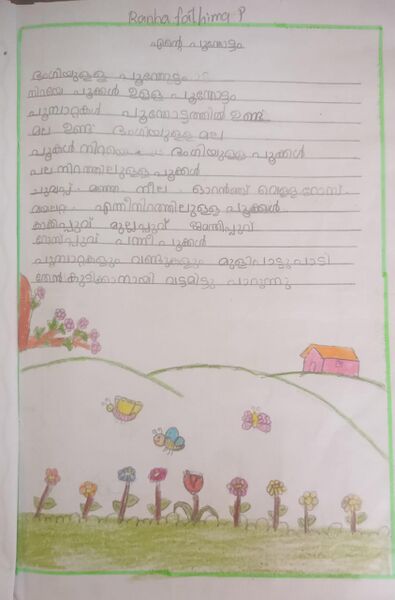 Ranha fathima P
എന്റെ പൂന്തോട്ടം
ഭംഗിയുള്ള പൂന്തോട്ടം
നിറയെ പൂക്കൾ ഉള്ള പൂന്തോട്ടം
പൂമ്പാറ്റകൾ പൂന്തോട്ടത്തിൽ ഉണ്ട്
മല ഉണ്ട് ഭംഗിയുള്ള മല
പൂകൾ നിറയെ ഭംഗിയുള്ള പൂക്കൾ
പല നിറത്തിലുള്ള പൂക്കൾ
ചുവപ്പ് മഞ്ഞ നീല ഓറഞ്ച് വെള്ള റോസ്
വയലറ്റ് എന്നീനിറത്തിലുള്ള പൂക്കൾ
കാക്കപ്പുവ് മുല്ലപ്പുവ് ജമന്തിപ്പുവ്
റോസ്പ്പുവ് പന്നീ പൂക്കൾ
പൂമ്പാറ്റകളും വണ്ടുകളും മുളിപാട്ടുപാടി
തേൻ കുടിക്കാനായി വട്ടമിട്ടു പാറുന്നു